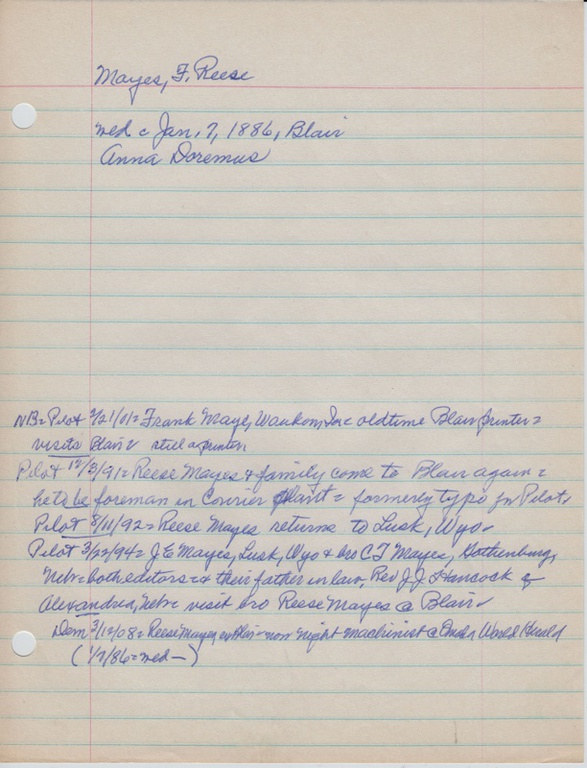 Mayes, F. Reese
med c Jan. 7, 1886, Blair
Anna Doremus
NB= Pilot 2/21/01= Frank Maye, Waukon, Ia= oldtime Blair printer=
visits Blair= still a printer
Pilot 12/3/91= Reese Mayes & family come to Blair again=
he to be foreman in Courier plant= formerly typo for Pilot
Pilot 8/11/92= Reese Mayes returns to Lusk, Wyo
Pilot 3/22/94= J E Mayes, Lusk, Wyo & bro C T Mayes, Gothenburg,
Neb= both editors= & their father in law, Rev J J Hancock of
Alexandria, Neb= visit bro Reese Mayes @ Blair
Dem 3/12/08= Reese Mayes, ex Blair= now night machinist @ Omaha World Herald
(1/7/86= med —)